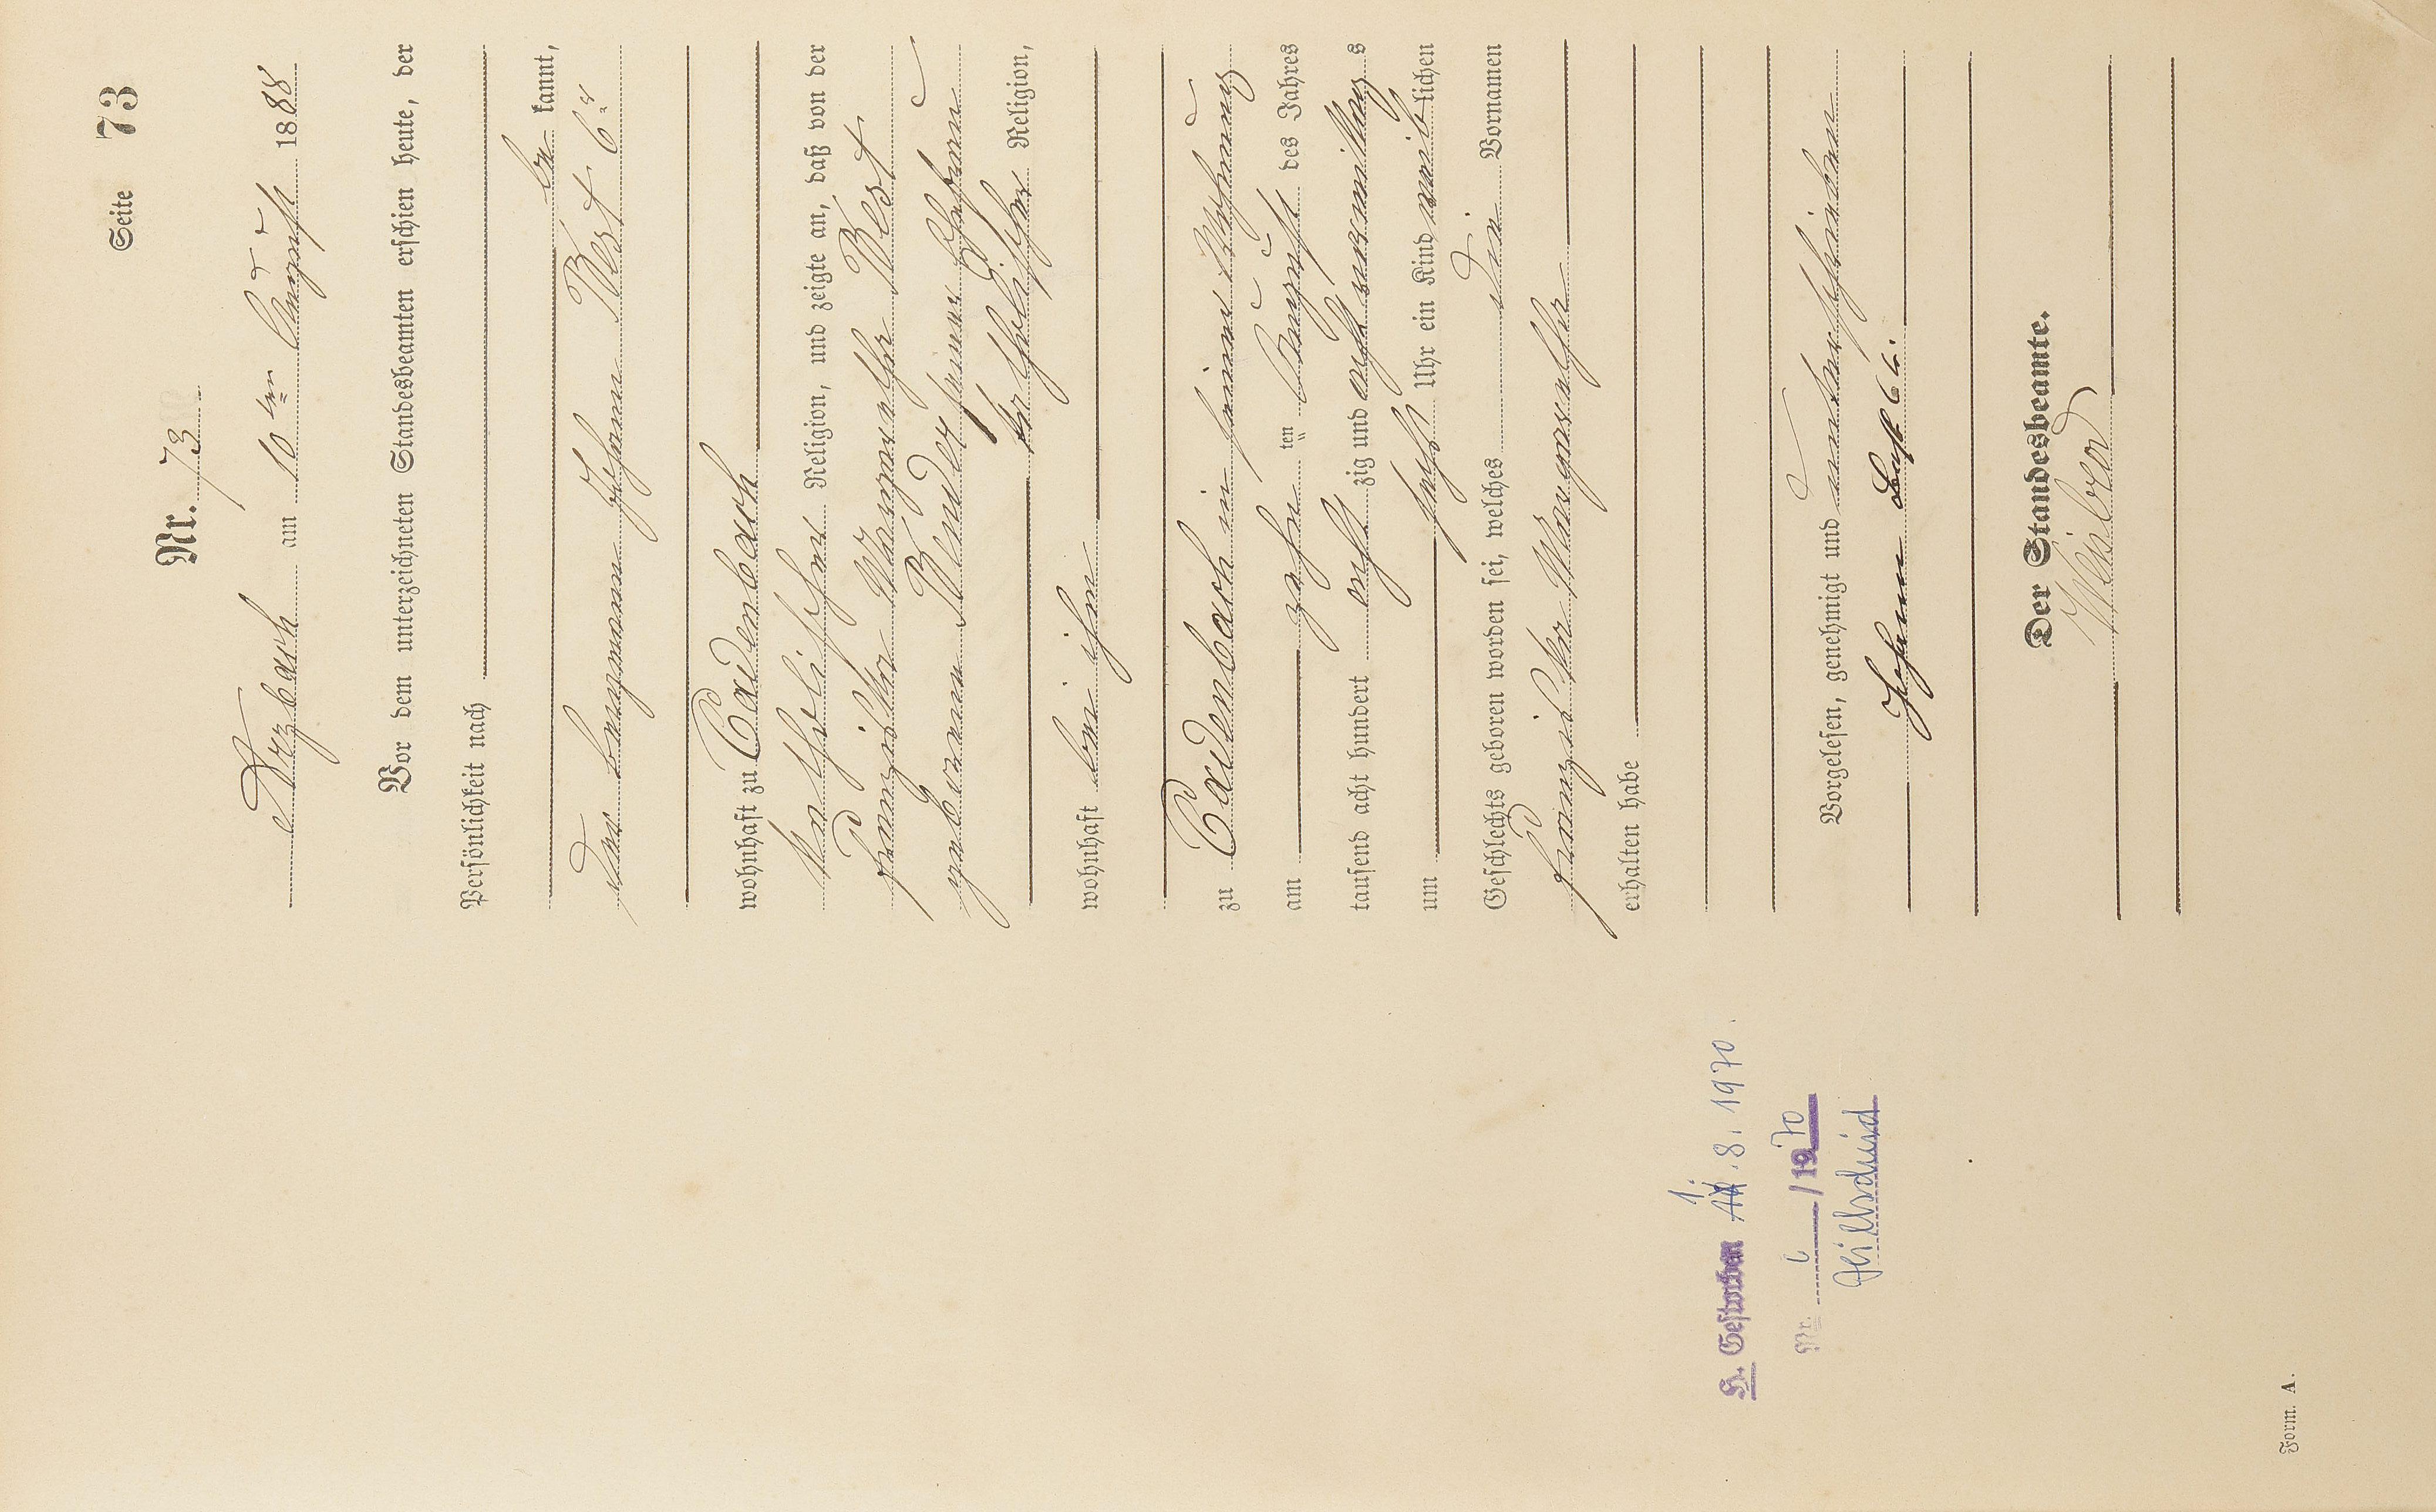 Seite 73
Nr. 73
Arzbach am 10ten August 1888
Vor dem unterzeichneten Standesbeamten erschien heute, der
Persönlichkeit nach
be kannt,
der Bergmann Johann Best 6r
wohnhaft zu Cadenbach
katholischer Religion, und zeigte an, daß von der
Franziska Margaretha Best
geborenen seiner Ehefrau
katholischer Religion,
wohnhaft bei ihm
zu Cadenbach in seiner Wohnung
am zehn ten August des Jahres
tausend acht hundert acht zig und acht vormittags
um sechs Uhr ein Kind weiblichen
Geschlechts geboren worden sei, welches die Vornamen
Franziska Margaretha
erhalten habe
Vorgelesen, genehmigt und unterschrieben
Johann Best 6r.
Der Standesbeamte.
H. Gestorben 1. 8. 1970.
Nr. 6 /1970
Form. A.